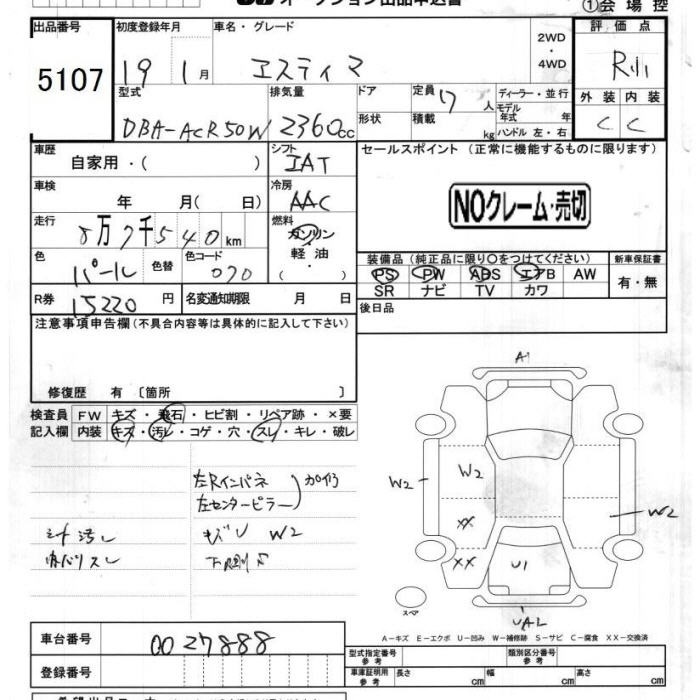 オークション出品申込書
①会場控
出品番号
5107
初度登録年月
19 1月
車名・グレード
エスティマ
2WD
4WD
評価点
外装 内装
C C
型式
DBA-ACR50W
排気量
2360cc
ドア
形状
定員 7人
積載 kg
ディーラー・並行
モデル年式 年
ハンドル 左・右
車歴
自家用・( )
シフト
IAT
セールスポイント(正常に機能するものに限ります)
NOクレーム・売切
車検
年 月( 日)
冷房
AAC
走行
8万7千540km
燃料
ガソリン
軽油
( ・ )
色
パール
色替
色コード
070
装備品(純正品に限り○をつけてください)
PS PW ABS エアB AW
SR ナビ TV カワ
新車保証書
有・無
R券
15220円
名変通知期限 月 日
後日品
注意事項申告欄(不具合内容等は具体的に記入して下さい)
修復歴 有〔箇所 〕
検査員
記入欄
FW キズ・飛石・ヒビ割・リペア跡・×要
内装 キズ・汚レ・コゲ・穴・スレ・キレ・破レ
左Rインパネ
左センターピラー
シート汚し
内バリスレ
キズU W2
A1
W2
W2
XX
XX
U1
W2
UAL
スペア
A-キズ E-エクボ U-凹み W-補修跡 S-サビ C-腐食 XX-交換済
車台番号
0027888
登録番号
型式指定番号
参考
類別区分番号
参考
車庫証明用
参考
長さ cm
幅 cm
高さ cm